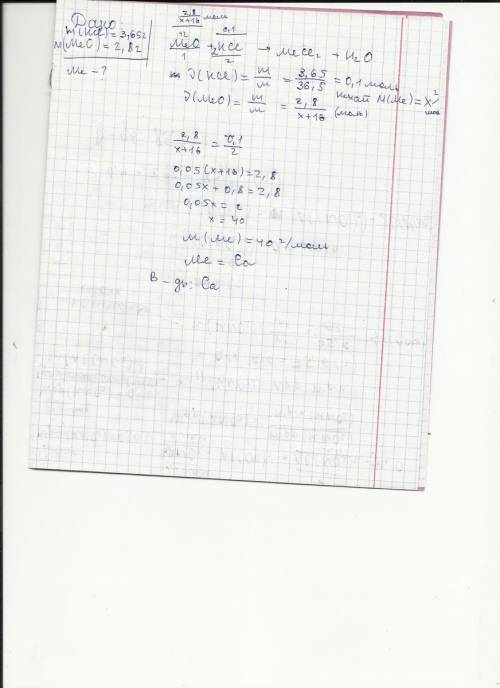 Дано:
m(HCl) = 3,65г
m(MeO) = 2,8г
Me - ?
2,8/x+16 моль 0,1
MeO + 2HCl → MeCl₂ + H₂O
1 2
ν(HCl) = m/м = 3,65/36,5 = 0,1 моль
нехай M(Me) = x г/моль
ν(MeO) = m/м = 2,8/x+16 (моль)
2,8/x+16 = 0,1/2
0,05(x+16) = 2,8
0,05x + 0,8 = 2,8
0,05x = 2
x = 40
M(Me) = 40 г/моль
Me = Ca
В-дь: Ca